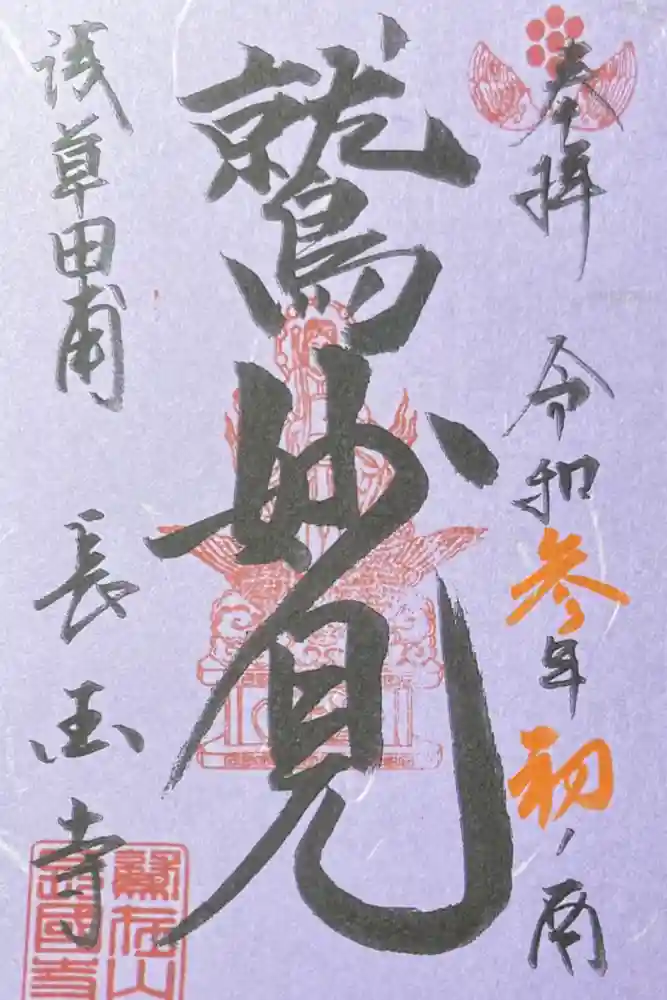 奉拝 令和参年初ノ酉
鷲妙見
浅草田甫 長国寺
鷲在山
長國寺